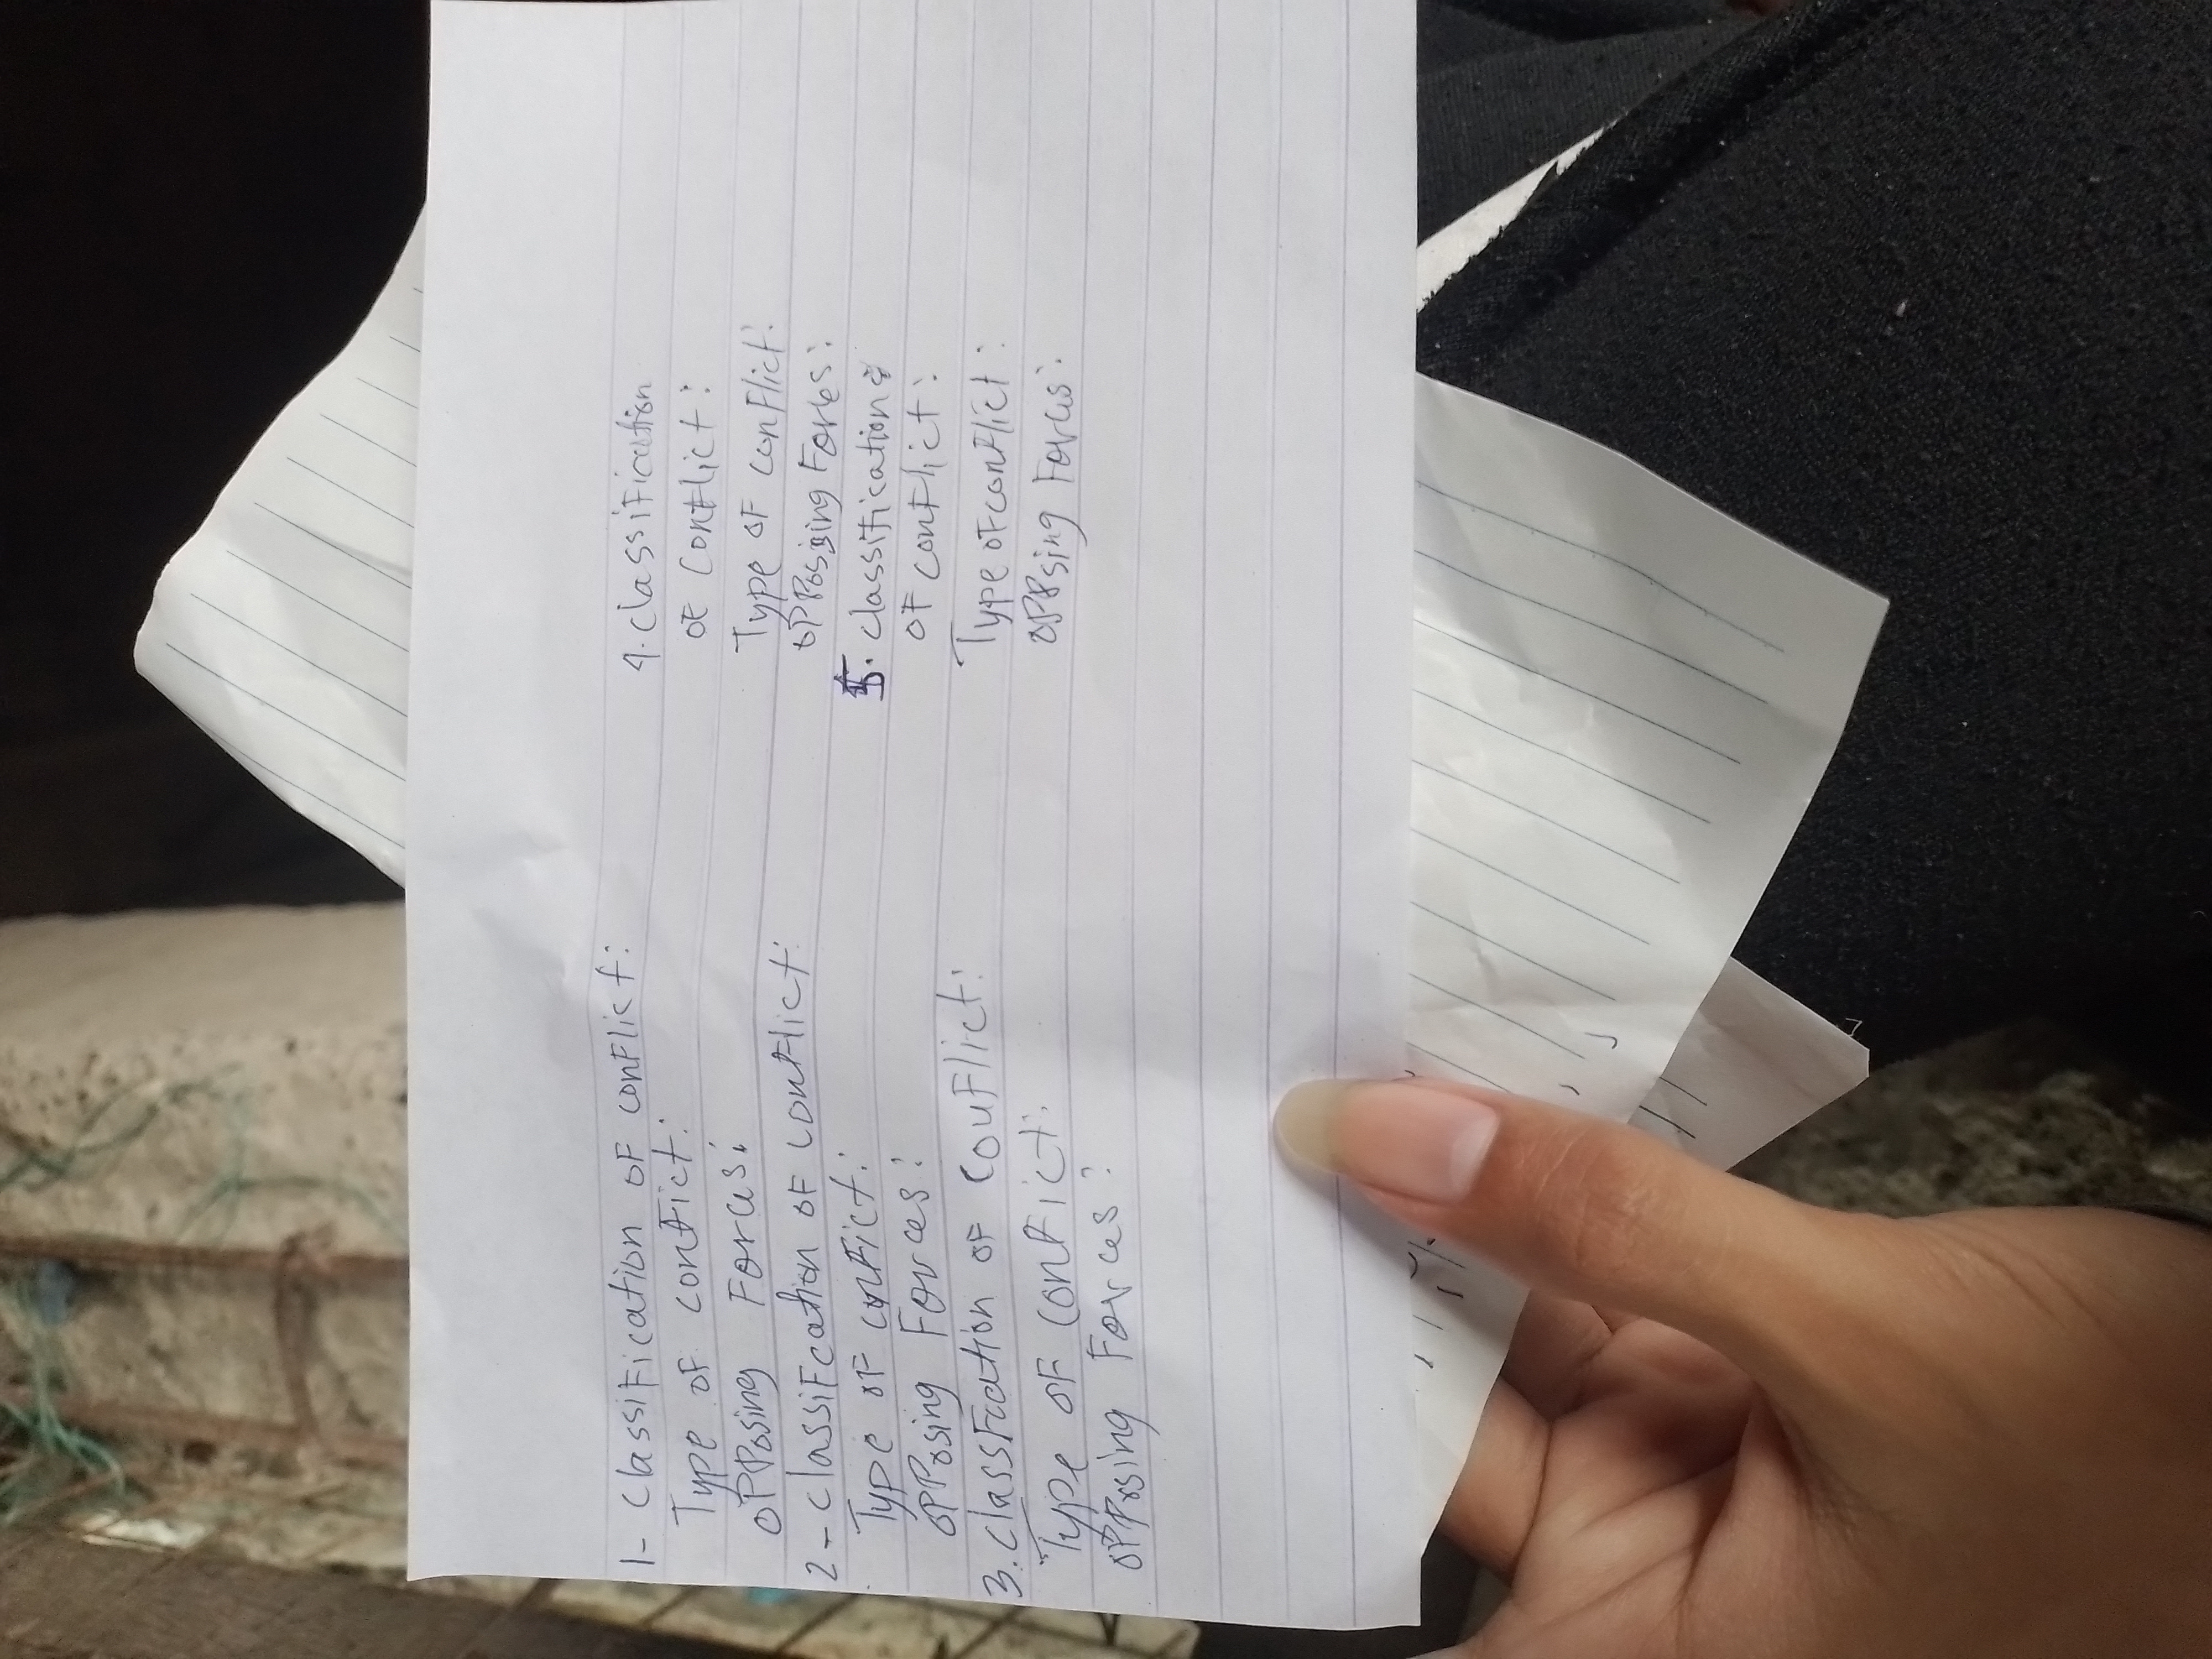 1- Classification of conflict:
Type of confict:
opposing Forces:
2- classifcation of conflict:
Type of confict:
opposing Forces:
3. classfcation of conflict:
Type of confict:
opposing Forces:
4. classification
of conflict:
Type of conflict:
opposing Forces:
5. classification:
of conflict:
Type of conflict:
oppsing Forces: